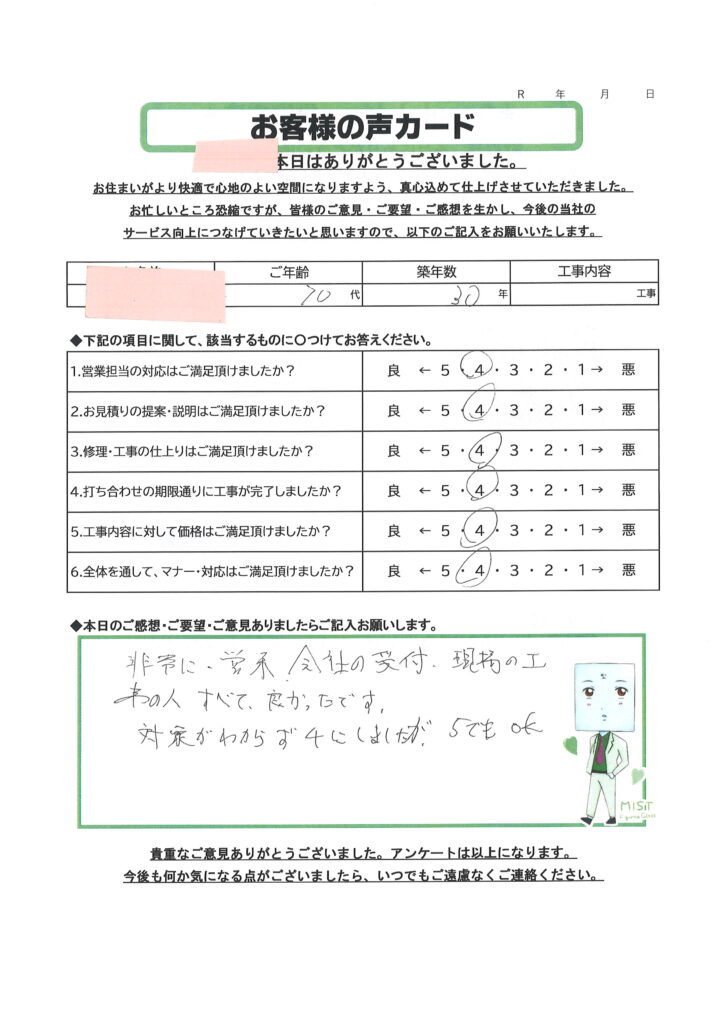 R 年 月 日
お客様の声カード
本日はありがとうございました。
お住まいがより快適で心地のよい空間になりますよう、真心込めて仕上げさせていただきました。
お忙しいところ恐縮ですが、皆様のご意見・ご要望・ご感想を生かし、今後の当社の
サービス向上につなげていきたいと思いますので、以下のご記入をお願いいたします。
ご年齢 築年数 工事内容
70代 30年 工事
◆下記の項目に関して、該当するものに〇つけてお答えください。
1.営業担当の対応はご満足頂けましたか? 良 ← 5 ・ 4 ・ 3 ・ 2 ・ 1→ 悪
2.お見積りの提案・説明はご満足頂けましたか? 良 ← 5 ・ 4 ・ 3 ・ 2 ・ 1→ 悪
3.修理・工事の仕上りはご満足頂けましたか? 良 ← 5 ・ 4 ・ 3 ・ 2 ・ 1→ 悪
4.打ち合わせの期限通りに工事が完了しましたか? 良 ← 5 ・ 4 ・ 3 ・ 2 ・ 1→ 悪
5.工事内容に対して価格はご満足頂けましたか? 良 ← 5 ・ 4 ・ 3 ・ 2 ・ 1→ 悪
6.全体を通して、マナー・対応はご満足頂けましたか? 良 ← 5 ・ 4 ・ 3 ・ 2 ・ 1→ 悪
◆本日のご感想・ご要望・ご意見ありましたらご記入お願いします。
非常に、営業、会社の受付、現場の工
事の人 すべて、良かったです。
対象がわからず4にしましたが、5でもOK
MIST
貴重なご意見ありがとうございました。アンケートは以上になります。
今後も何か気になる点がございましたら、いつでもご遠慮なくご連絡ください。